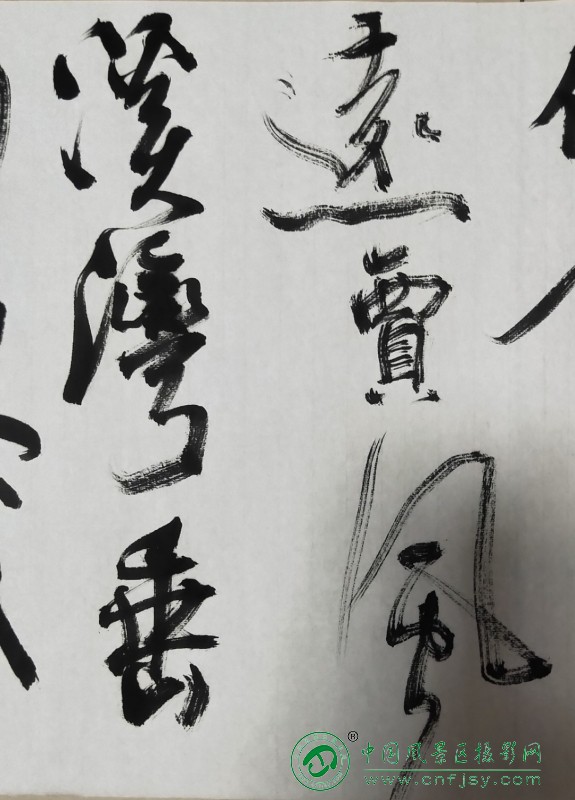 遠賈風
溪灣垂
®
中国风景区摄影网
www.cnfjsy.com